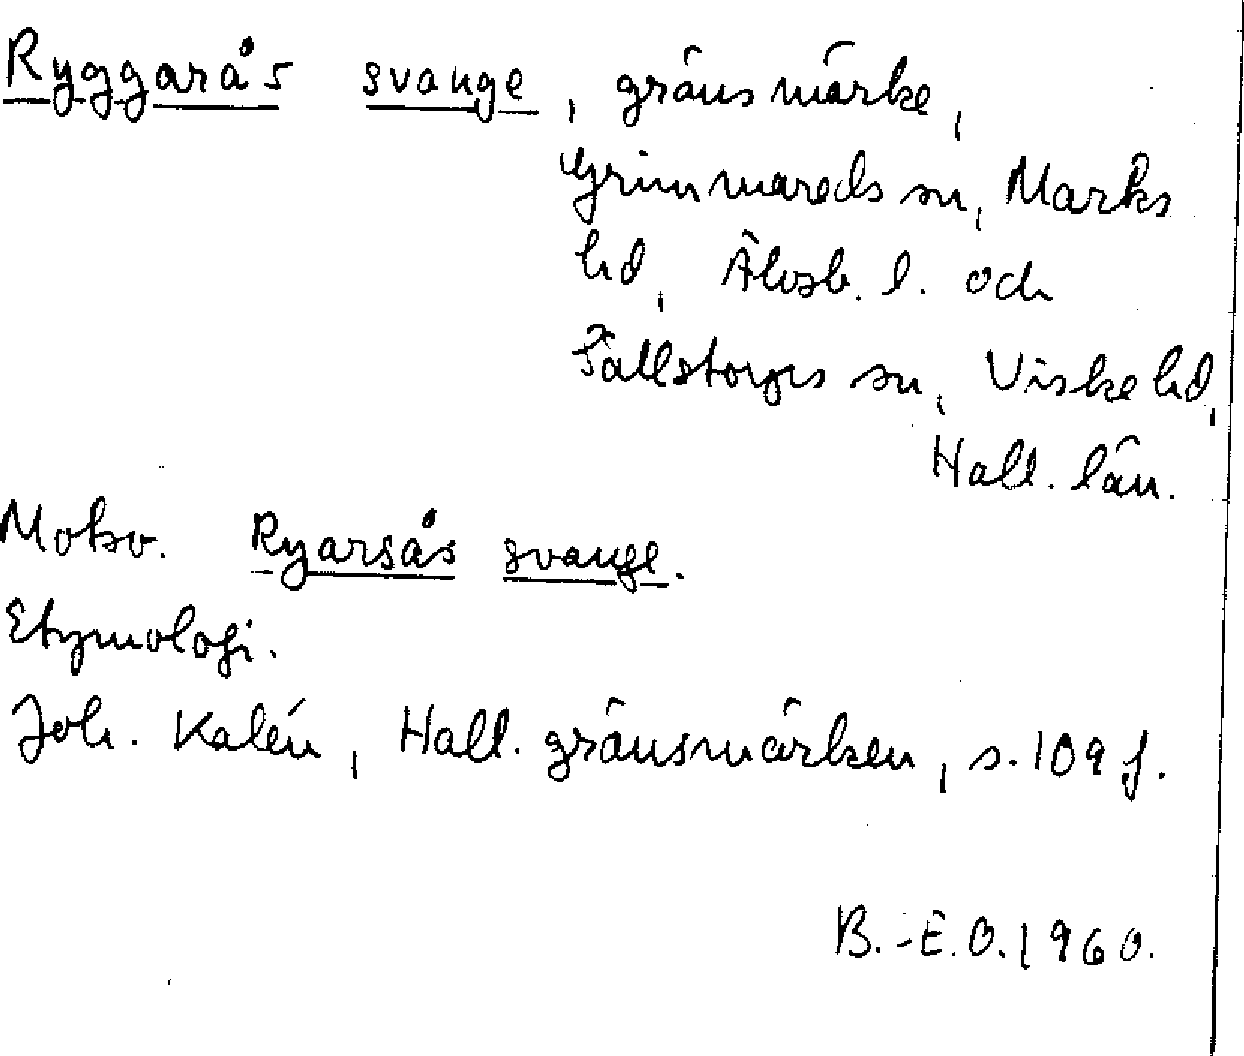 Ryggarås svange, gränsmärke,
Grimmareds sn, Marks
hd, Älvsb. l. och
Sällstorps sn, Viske hd,
Hall. län.
Motsv. Ryarsås svange.
Etymologi.
Joh. Kalén, Hall. gränsmärken, s. 109 f.
B.-E.O. 1960.